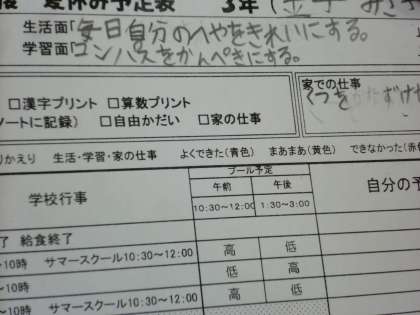 夏休み予定表 3年
生活面「毎日自分のへやをきれいにする。
学習面「コンパスをかんぺきにする。
家での仕事
くつを
□漢字プリント □算数プリント
ノートに記録) □自由かだい □家の仕事
りかえり 生活・学習・家の仕事 よくできた(青色) まあまあ(黄色) できなかった(赤
プール予定
学校行事 午前 午後 自分の予
10:30~12:00 1:30~3:00
了 給食終了
~10時 サマースクール10:30~12:00 高 低
~10時 低 高
~10時 サマースクール10:30~12:00 高 低